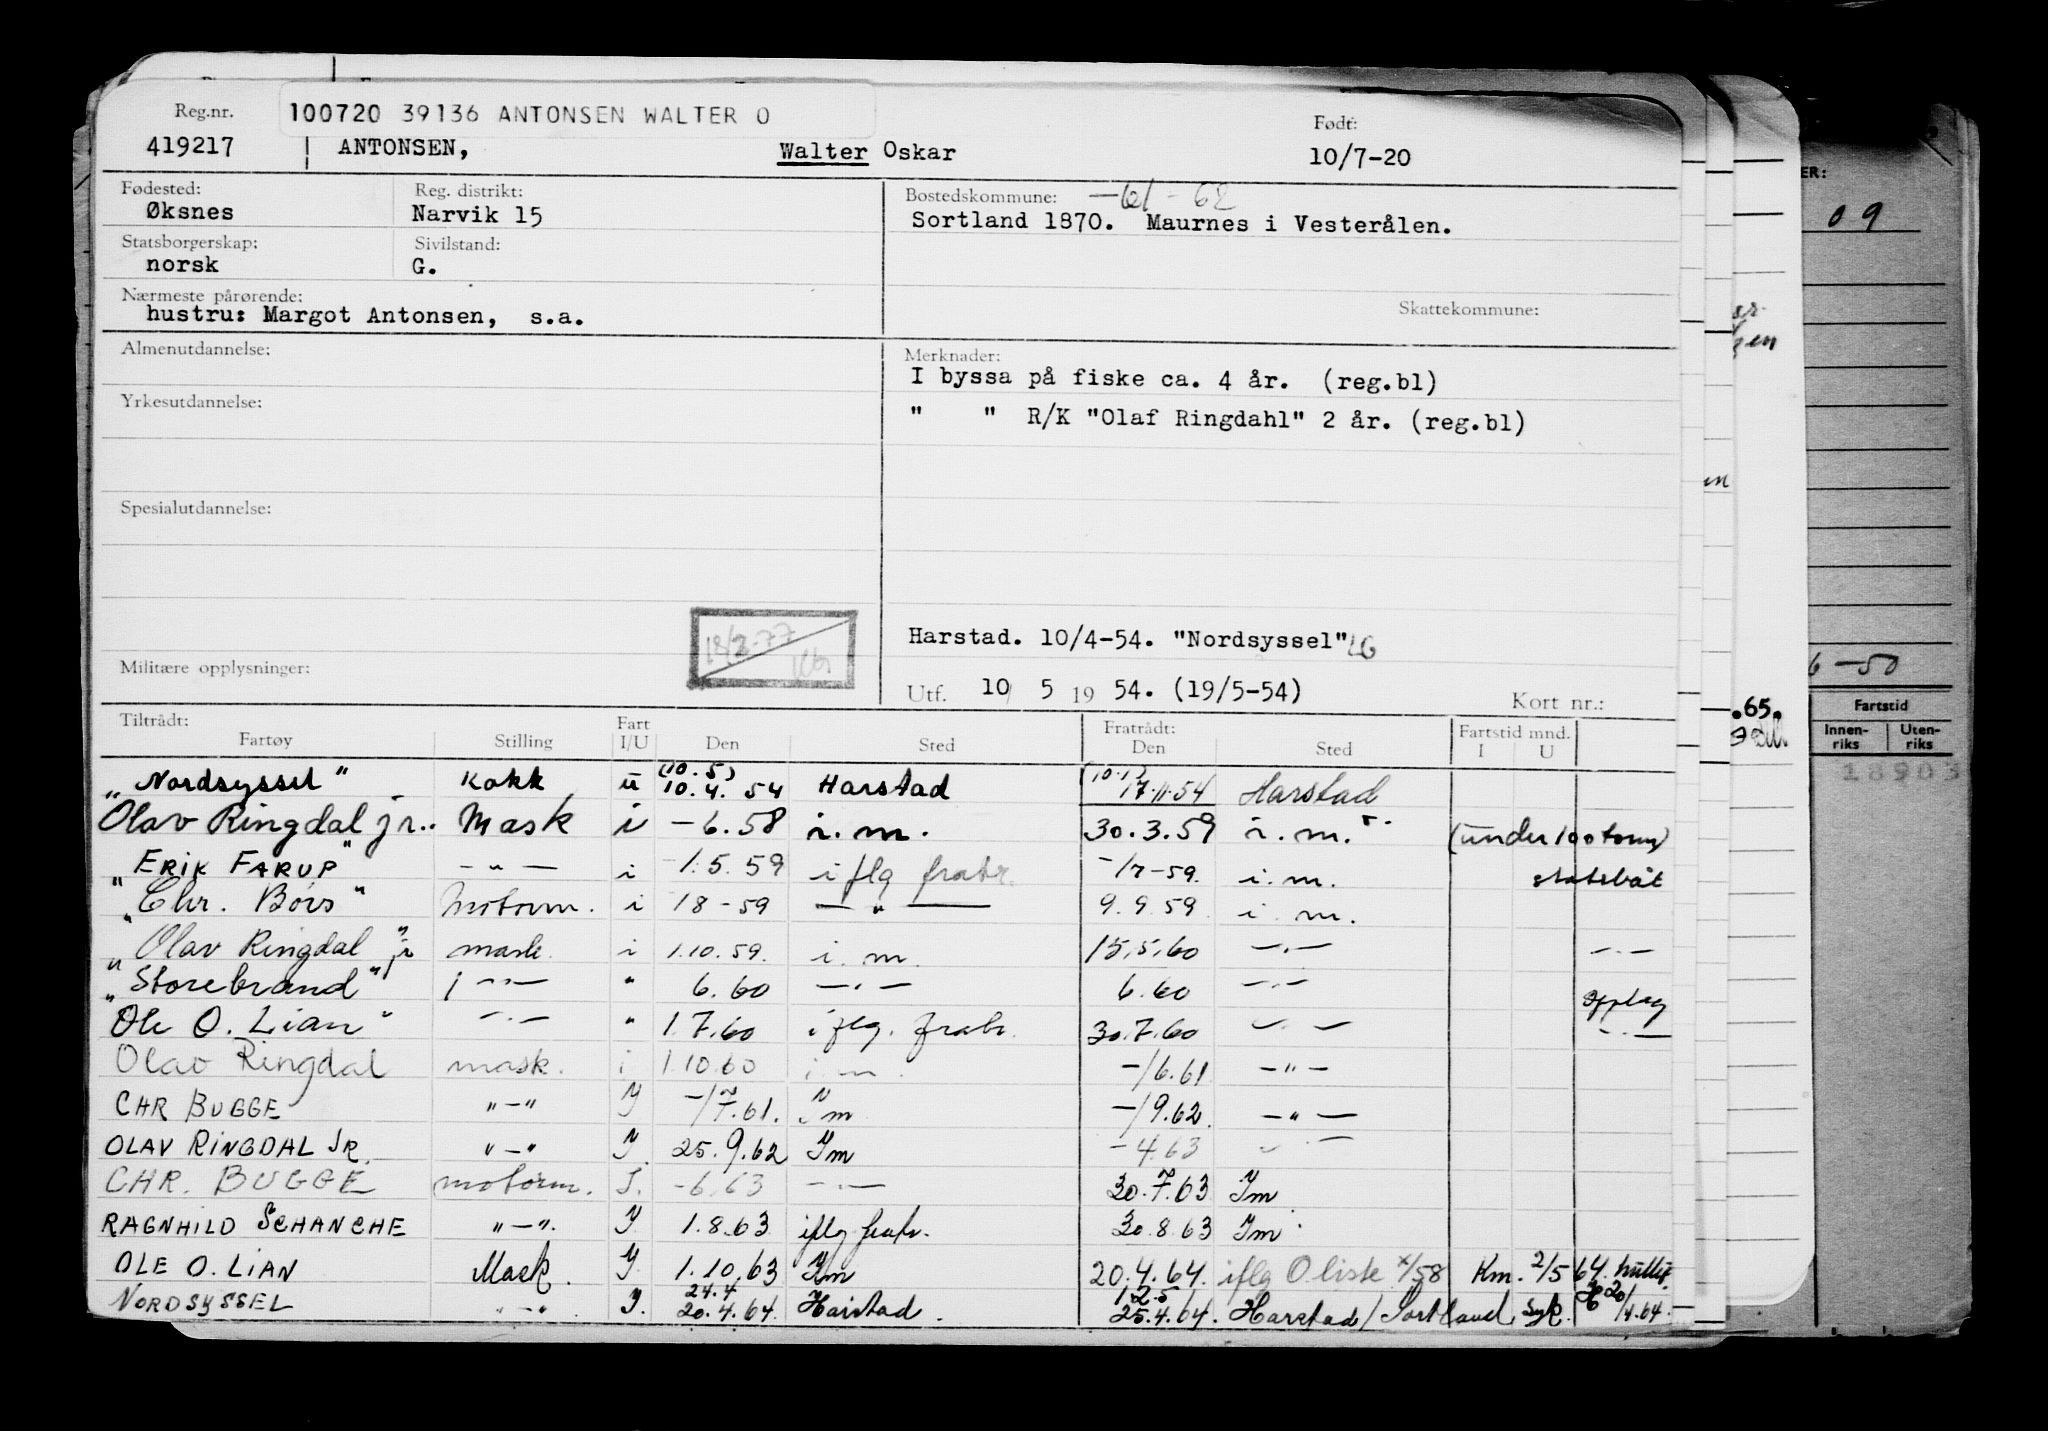 Reg.nr. 100720 39136 ANTONSEN WALTER O Født:
419217 ANTONSEN, Walter Oskar 10/7-20
Fødested: Reg. distrikt: Bostedskommune: -61-62
Øksnes Narvik 15 Sortland 1870. Maurnes i Vesterålen.
Statsborgerskap: Sivilstand:
norsk G.
Nærmeste pårørende: Skattekommune:
hustru: Margot Antonsen, s.a.
Almenutdannelse: Merknader:
I byssa på fiske ca. 4 år. (reg.bl)
Yrkesutdannelse:
" " R/K "Olaf Ringdahl" 2 år. (reg.bl)
Spesialutdannelse:
Harstad. 10/4-54. "Nordsyssel"
Militære opplysninger:
Utf. 10 5 19 54. (19/5-54) Kort nr.:
Tiltrådt: Fart Fratrådt: Fartstid mnd.
Fartøy Stilling I/U Den Sted Den Sted I U
"Nordsyssel" Kokk u (10.5) 10.4.54 Harstad (10.1) 17.11.54 Harstad
Olav Ringdal jr. Mask i -6.58 i.m. 30.3.59 i.m. (under 100 tonn)
"ERIK FARUP" -"- i 1.5.59 iflg fratr. -/7-59. i.m. statsbåt
"Chr. Børs" Motorm. i 18-59 -"- 9.9.59 i.m.
"Olav Ringdal jr" mask. i 1.10.59. i.m. 15.5.60 -"- -"-
"Storebrand" -"- " 6.60 -"- 6.60 -"- opplag
"Ole O. Lian" -"- " 1.7.60 iflg. fratr. 30.7.60 -"- -"-
Olav Ringdal mask. i 1.10.60 i.m. -/6.61 -"-
CHR BUGGE "-" I -/7.61. Im -/9.62 -"-
OLAV RINGDAL JR. "-" I. 25.9.62 Im -4.63 -"-
CHR. BUGGE motorm. I. -6.63 -"- 30.7.63 Im
RAGNHILD SCHANCHE "-". I 1.8.63 iflg fratr. 30.8.63 Im
OLE O. LIAN Mask. I. 1.10.63 Im 20.4.64. iflg O liste 4/58 Km. 2/5 64.
NORDSYSSEL "-" I. 24.4 20.4.64. Harstad. 12.5 25.4.64. Harstad/Sortland, syk. 20/4.64.
ER:
09
6-50
.65.
Fartstid
Innen-riks Uten-riks
18903